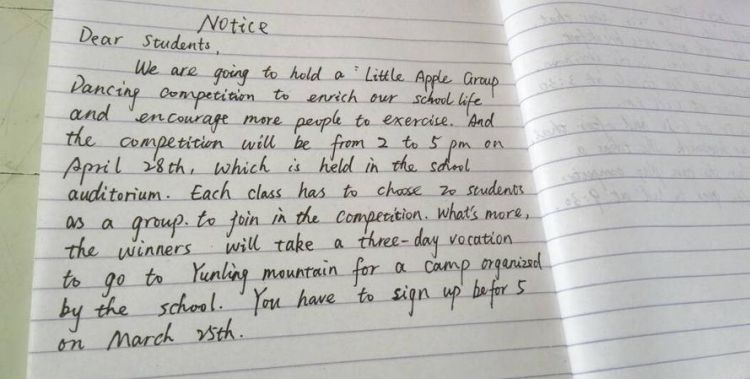 Notice
Dear Students,
We are going to hold a "Little Apple Group
Dancing competition to enrich our school life
and encourage more people to exercise. And
the competition will be from 2 to 5 pm on
April 28th, which is held in the school
auditorium. Each class has to choose 20 students
as a group. to join in the competition. What's more,
the winners will take a three-day vocation
to go to Yunling mountain for a camp organized
by the school. You have to sign up befor 5
on March 25th.